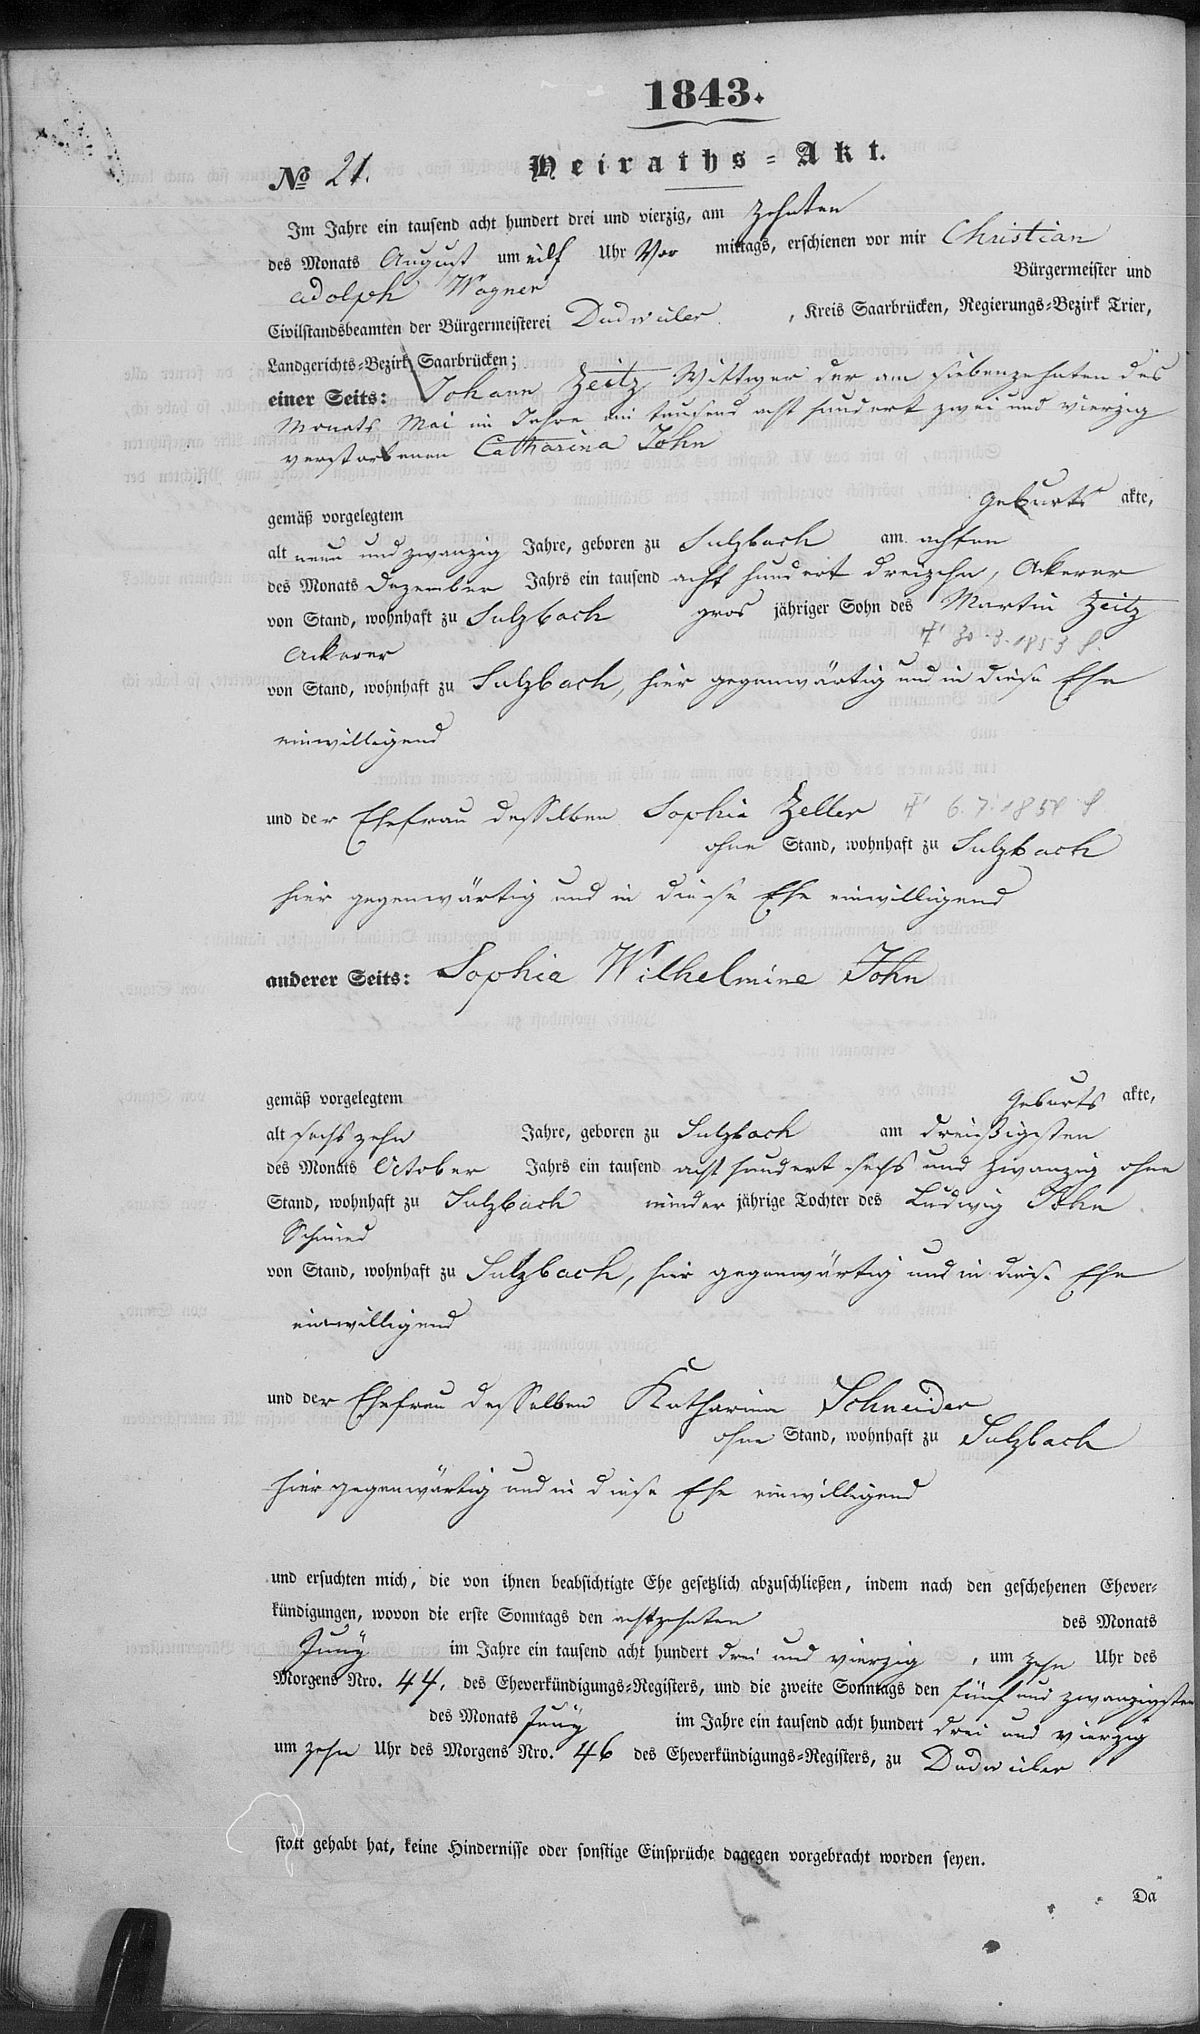 1843.
Heiraths-Akt.
No 21.
Im Jahre ein tausend acht hundert drei und vierzig, am zehnten
des Monats August um eilf Uhr Vor mittags, erschienen vor mir Christian
Adolph Wagner Bürgermeister und
Civilstandsbeamten der Bürgermeisterei Dudweiler, Kreis Saarbrücken, Regierungs-Bezirk Trier,
Landgerichts-Bezirk Saarbrücken;
einer Seits: Johann Zeitz Wittwer der am siebenzehnten des
Monats Mai im Jahre ein tausend acht hundert zwei und vierzig
verstorbenen Catharina John
gemäß vorgelegtem Geburts akte,
alt neun und zwanzig Jahre, geboren zu Sulzbach am achten
des Monats Dezember Jahrs ein tausend acht hundert dreizehn, Ackerer
von Stand, wohnhaft zu Sulzbach gros jähriger Sohn des Martin Zeitz
30.3.1853
Ackerer
von Stand, wohnhaft zu Sulzbach, hier gegenwärtig und in diese Ehe
einwilligend
und der Ehefrau desselben Sophia Zeller 6.7.185
ohne Stand, wohnhaft zu Sulzbach
hier gegenwärtig und in diese Ehe einwilligend
anderer Seits: Sophia Wilhelmine John
gemäß vorgelegtem Geburts akte,
alt sechszehn Jahre, geboren zu Sulzbach am dreißigsten
des Monats October Jahrs ein tausend acht hundert sechs und zwanzig ohne
Stand, wohnhaft zu Sulzbach minder jährige Tochter des Ludwig John
Schmied
von Stand, wohnhaft zu Sulzbach, hier gegenwärtig und in diese Ehe
einwilligend
und der Ehefrau desselben Katharina Schneider
ohne Stand, wohnhaft zu Sulzbach
hier gegenwärtig und in diese Ehe einwilligend
und ersuchten mich, die von ihnen beabsichtigte Ehe gesetzlich abzuschließen, indem nach den geschehenen Ehever-
kündigungen, wovon die erste Sonntags den achtzehnten des Monats
Juny im Jahre ein tausend acht hundert drei und vierzig, um zehn Uhr des
Morgens Nro. 44, des Eheverkündigungs-Registers, und die zweite Sonntags den fünf und zwanzigsten
des Monats Juny im Jahre ein tausend acht hundert drei und vierzig
um zehn Uhr des Morgens Nro. 46 des Eheverkündigungs-Registers, zu Dudweiler
statt gehabt hat, keine Hindernisse oder sonstige Einsprüche dagegen vorgebracht worden seyen.
Da